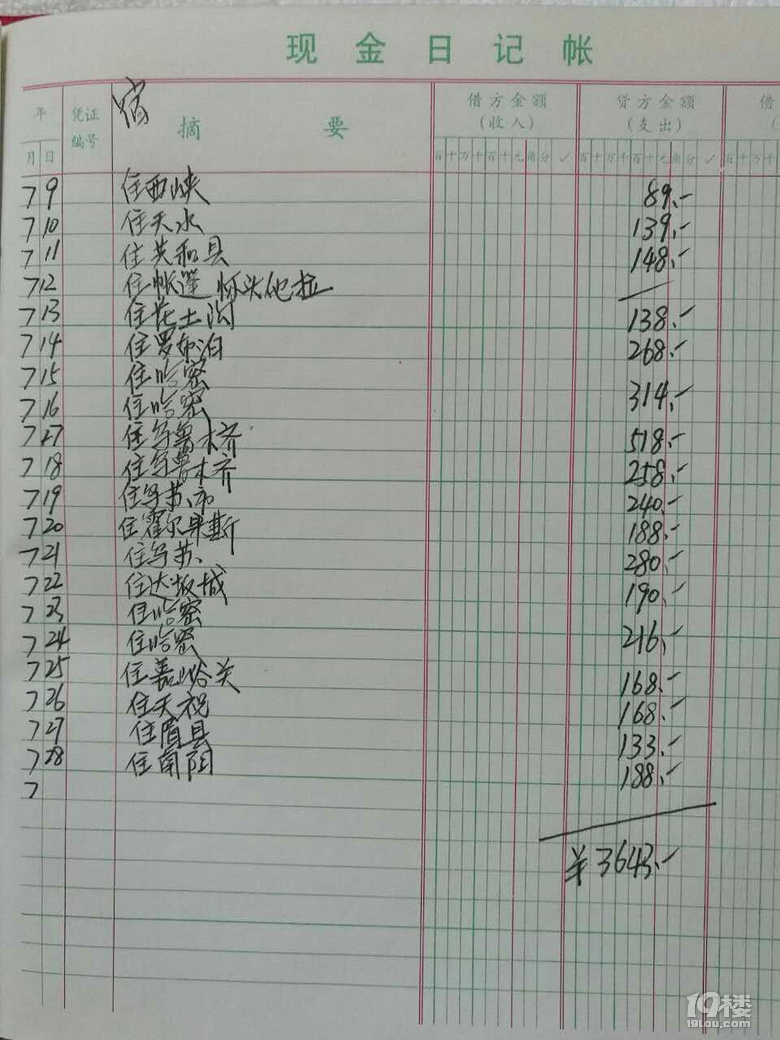 现金日记帐
宿
年 凭证编号 摘要 借方金额(收入) 贷方金额(支出) 借
月 日 百十万千百十元角分✓ 百十万千百十元角分✓ 百十万千
7 9 住西峡 89.-
7 10 住天水 139.-
7 11 住共和县 148.-
7 12 住帐篷 怀头他拉 —
7 13 住花土沟 138.-
7 14 住罗布泊 268.-
7 15 住哈密
7 16 住哈密 314.-
7 17 住乌鲁木齐 518.-
7 18 住乌鲁木齐 258.-
7 19 住乌苏市 240.-
7 20 住霍尔果斯 188.-
7 21 住乌苏 280.-
7 22 住达坂城 190.-
7 23 住哈密
7 24 住哈密 216.-
7 25 住嘉峪关 168.-
7 26 住天祝 168.-
7 27 住眉县 133.-
7 28 住南阳 188.-
7
¥3643.-
19楼
19lou.com